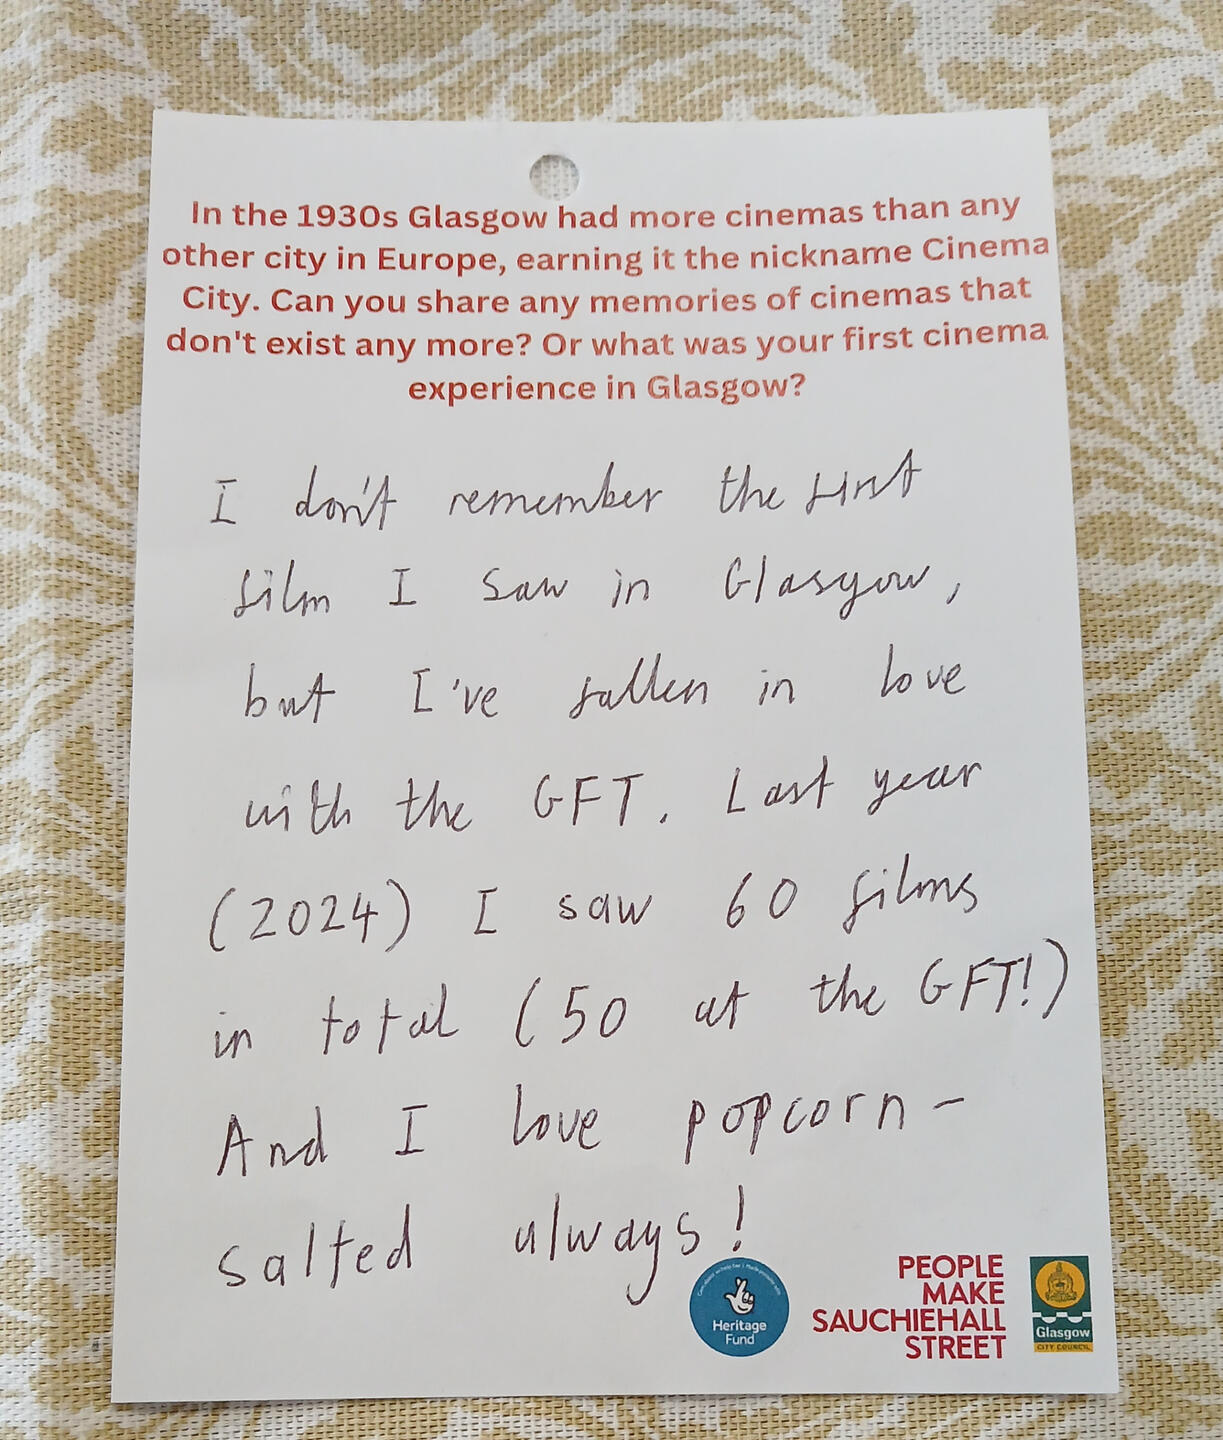 In the 1930s Glasgow had more cinemas than any
other city in Europe, earning it the nickname Cinema
City. Can you share any memories of cinemas that
don't exist any more? Or what was your first cinema
experience in Glasgow?
I don't remember the first
film I saw in Glasgow,
but I've fallen in love
with the GFT. Last year
(2024) I saw 60 films
in total (50 at the GFT!)
And I love popcorn-
salted always!
Heritage
Fund
PEOPLE
MAKE
SAUCHIEHALL
STREET
Glasgow
CITY COUNCIL